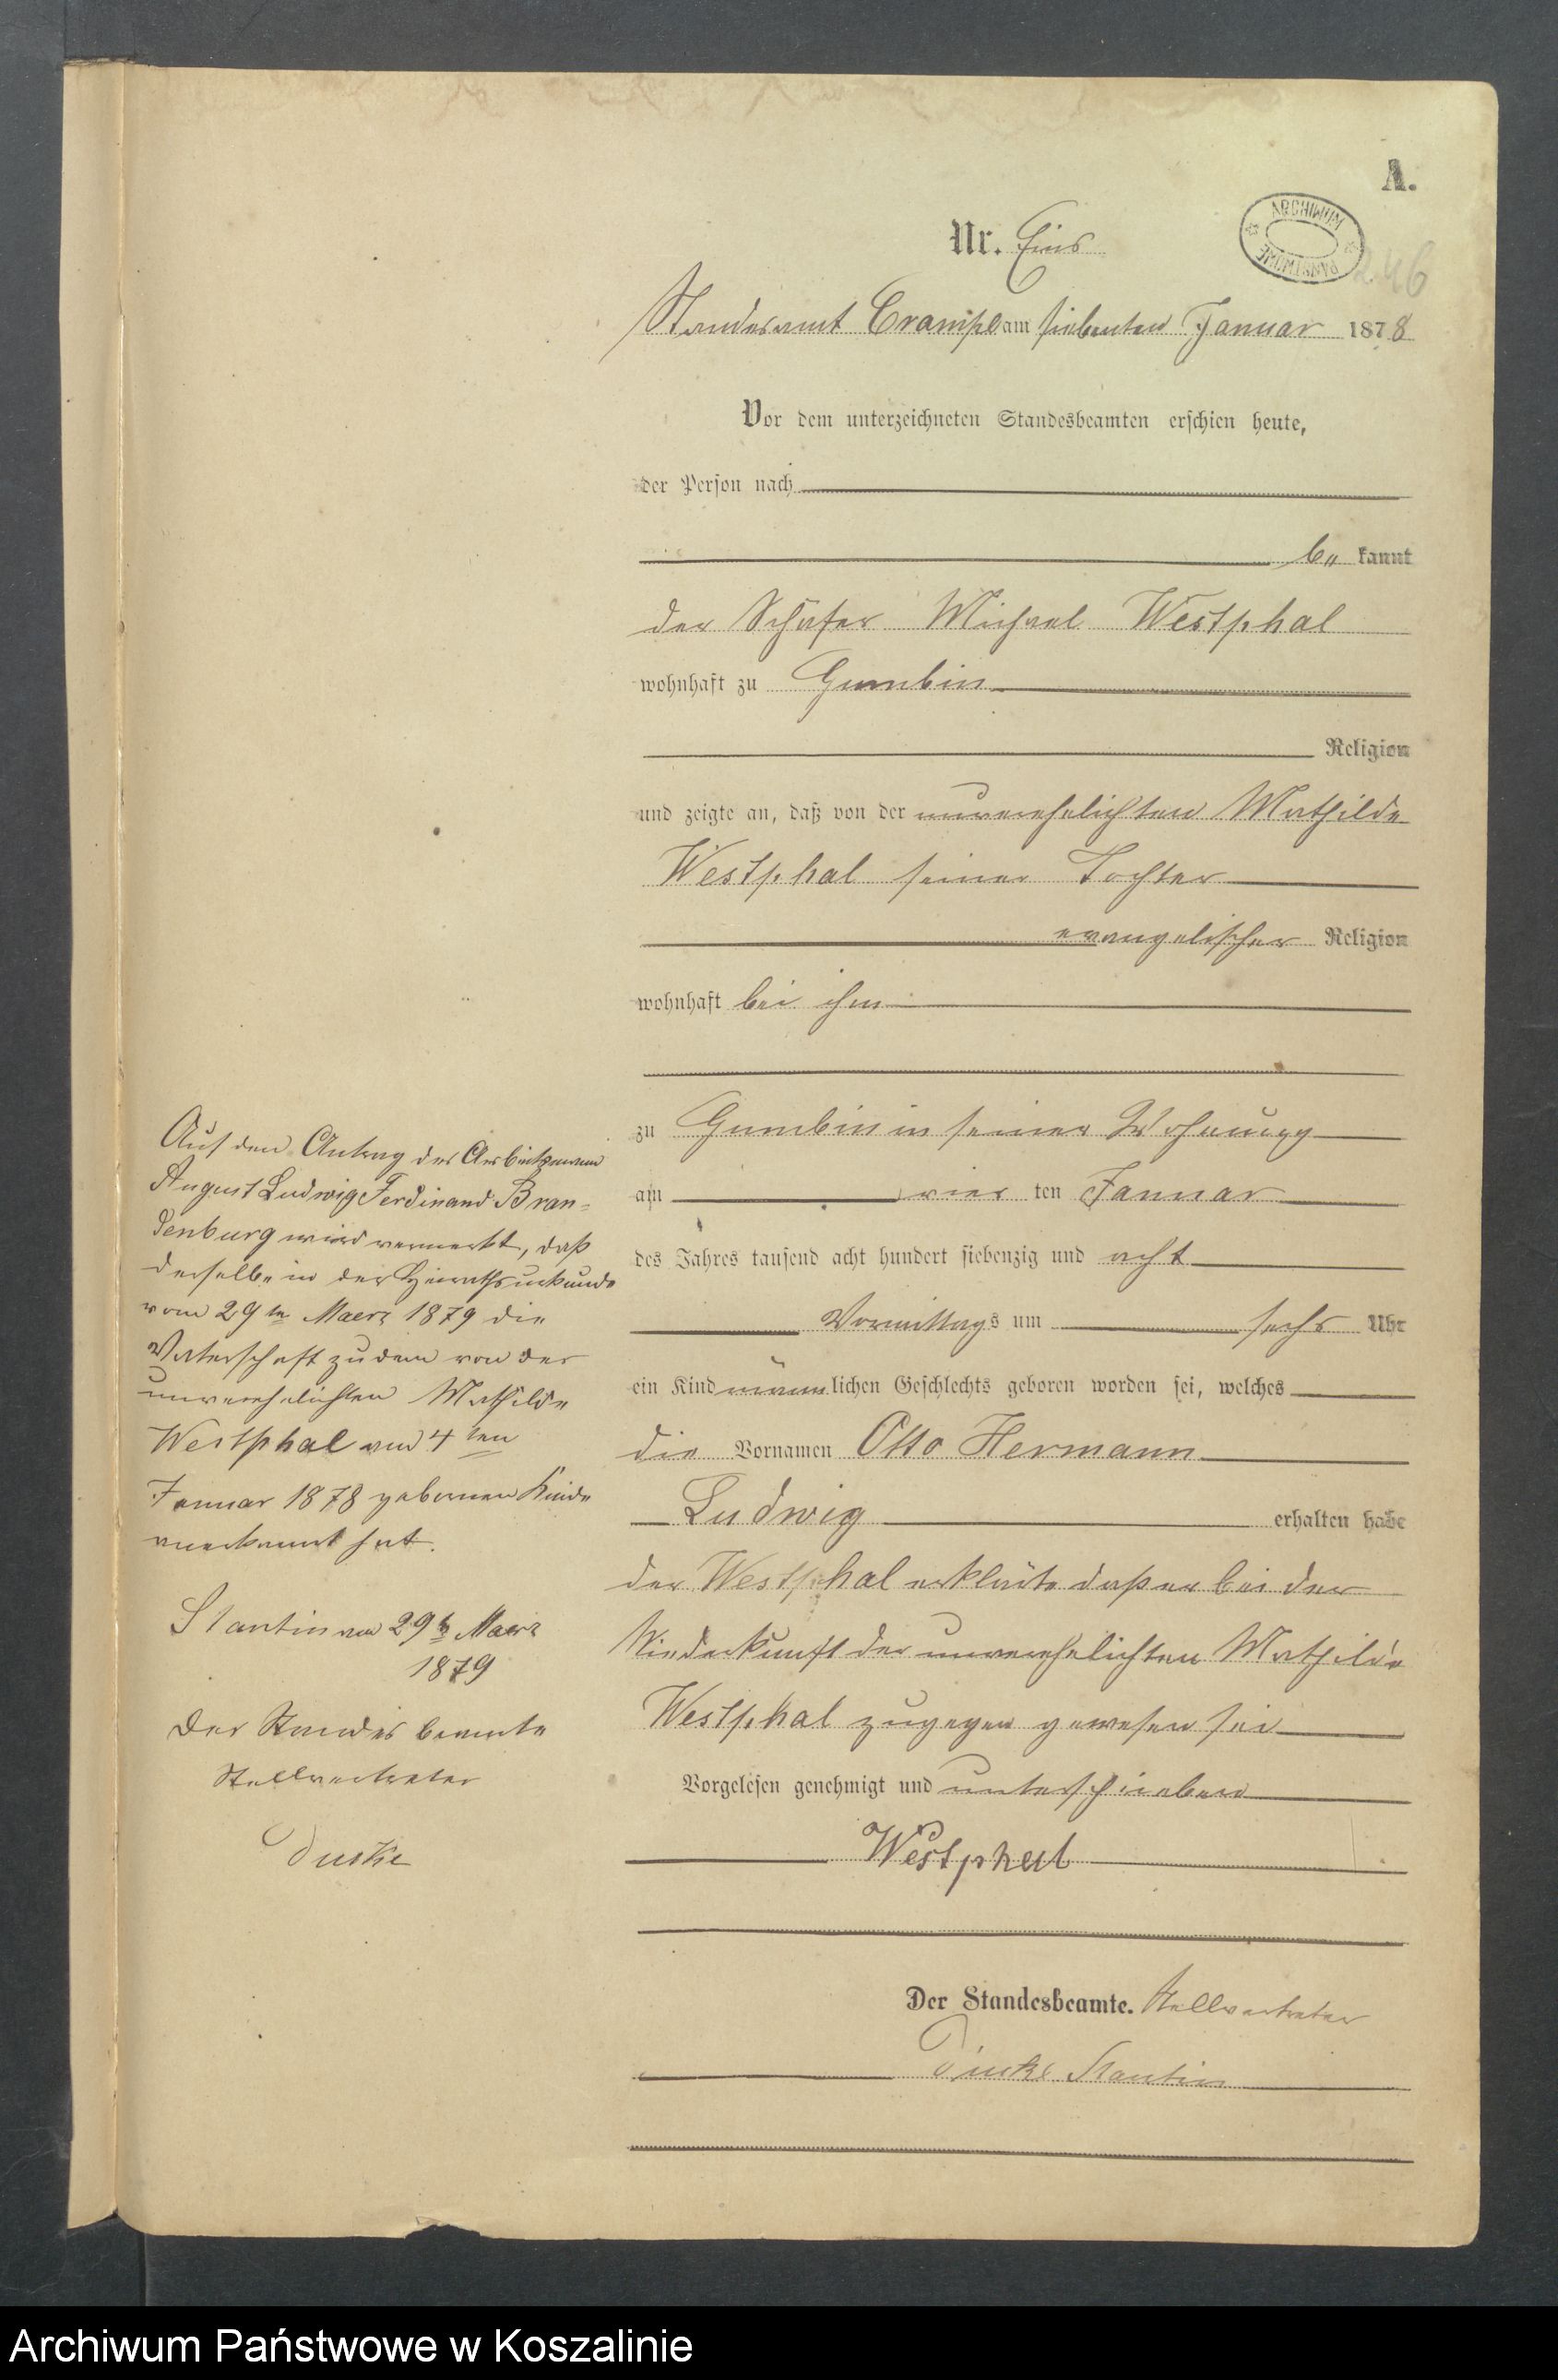 A.
Nr. Eins
ARCHIWUM PAŃSTWOWE
246
Standesamt Crampe am siebenten Januar 1878
Vor dem unterzeichneten Standesbeamten erschien heute,
der Person nach
be kannt
der Schäfer Michael Westphal
wohnhaft zu Gumbin
Religion
und zeigte an, daß von der unverehelichten Mathilde
Westphal seiner Tochter
evangelischer Religion
wohnhaft bei ihm
zu Gumbin in seiner Wohnung
am vier ten Januar
des Jahres tausend acht hundert siebenzig und acht
Vormittags um sechs Uhr
ein Kind männlichen Geschlechts geboren worden sei, welches
die Vornamen Otto Hermann
Ludwig erhalten habe
der Westphal erklärte daß er bei der
Niederkunft der unverehelichten Mathilde
Westphal zugegen gewesen sei
Vorgelesen genehmigt und unterschrieben
Westphal
Der Standesbeamte. Stellvertreter
Stantin
Auf den Antrag des Arbeitsmann
August Ludwig Ferdinand Bran-
denburg wird vermerkt, daß
derselbe in der Heirathsurkunde
vom 29ten Maerz 1879 die
Vaterschaft zu dem von der
unverehelichten Mathilde
Westphal am 4ten
Januar 1878 geborenen Kinde
anerkannt hat.
Stantin am 29t Maerz
1879
Der Standesbeamte
Stellvertreter
Archiwum Państwowe w Koszalinie